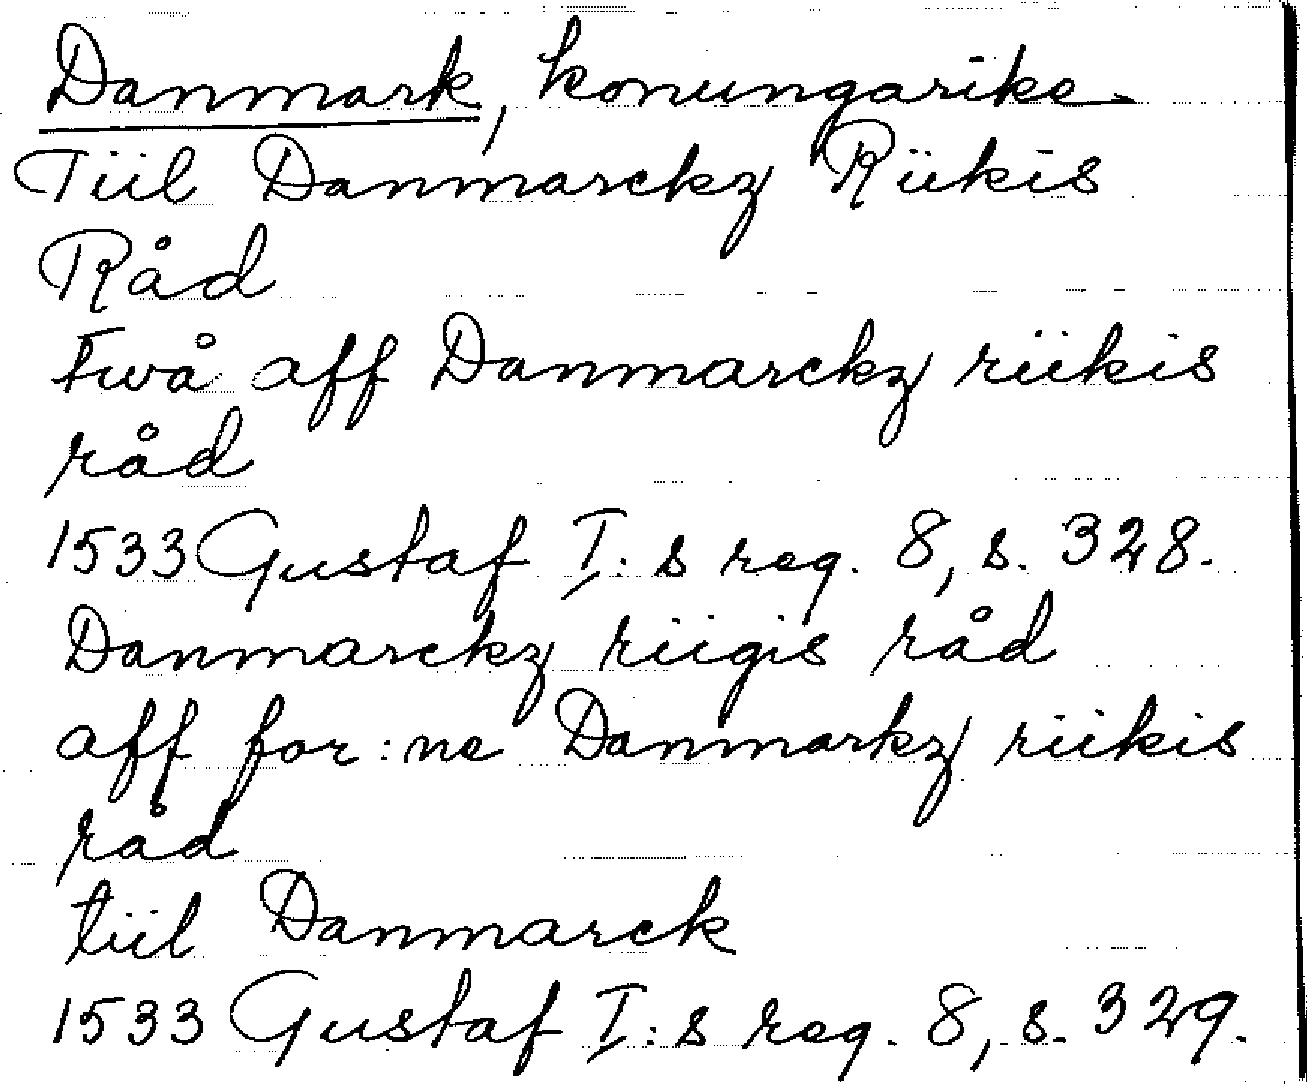 Danmark, konungarike
Tiil Danmarckz Riikis
Råd
Twå aff Danmarckz riikis
råd
1533 Gustaf I:s reg. 8, s. 328.
Danmarckz riigis råd
aff for:ne Danmarkz riikis
råd
tiil Danmarck
1533 Gustaf I:s reg. 8, s. 329.